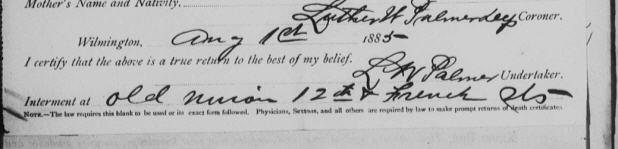 Mother's Name and Nativity,
Luther W Palmer Dep Coroner.
Wilmington, Aug 1st 1885
I certify that the above is a true return to the best of my belief.
L W Palmer Undertaker.
Interment at old Union 12th & French Sts
NOTE.—The law requires this blank to be used or its exact form followed. Physicians, Sextons, and all others are required by law to make prompt returns of death certificates.